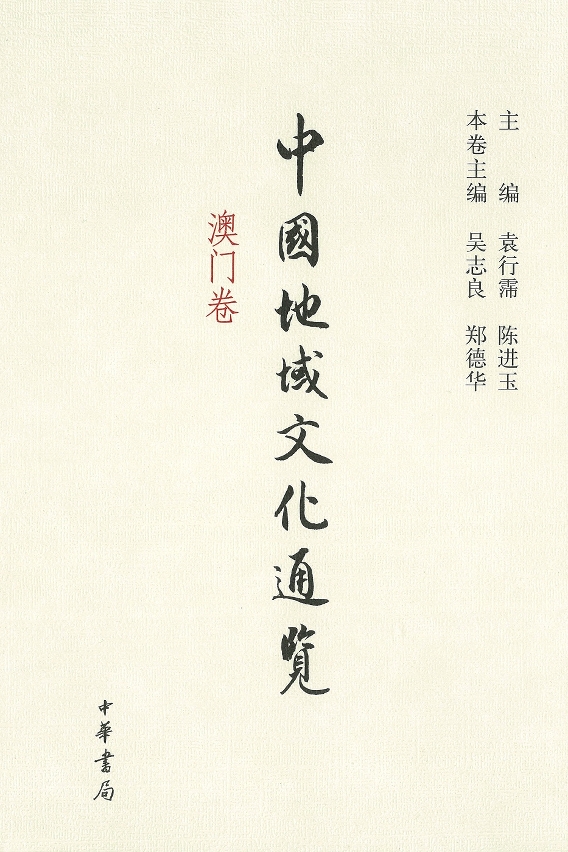 主　编　袁行霈　陈进玉
本卷主编　吴志良　郑德华
中國地域文化通覽
澳门卷
中華書局